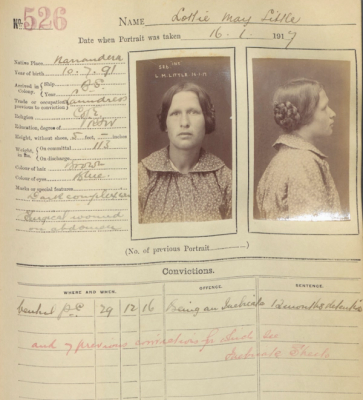 No. 526
NAME Lottie May Little
Date when Portrait was taken 16.1.1917
Native Place Narrandera
Year of birth 10.7.91
Arrived in Colony Ship
Year
B.C.
Trade or occupation previous to conviction Laundress
Religion C of E
Education, degree of
Height, without shoes 5 feet — inches
Weight in lbs. On committal 113
On discharge
Colour of hair Brown
Colour of eyes Blue
Marks or special features
Dark complexion
Surgical wound
on abdomen
L.M. LITTLE 16-1-17
(No. of previous Portrait)
Convictions.
WHERE AND WHEN. OFFENCE. SENTENCE.
Central P.C. 29 12 16 Being an Inebriate 12 months detention
and 7 previous convictions for which see
Inebriate Sheets